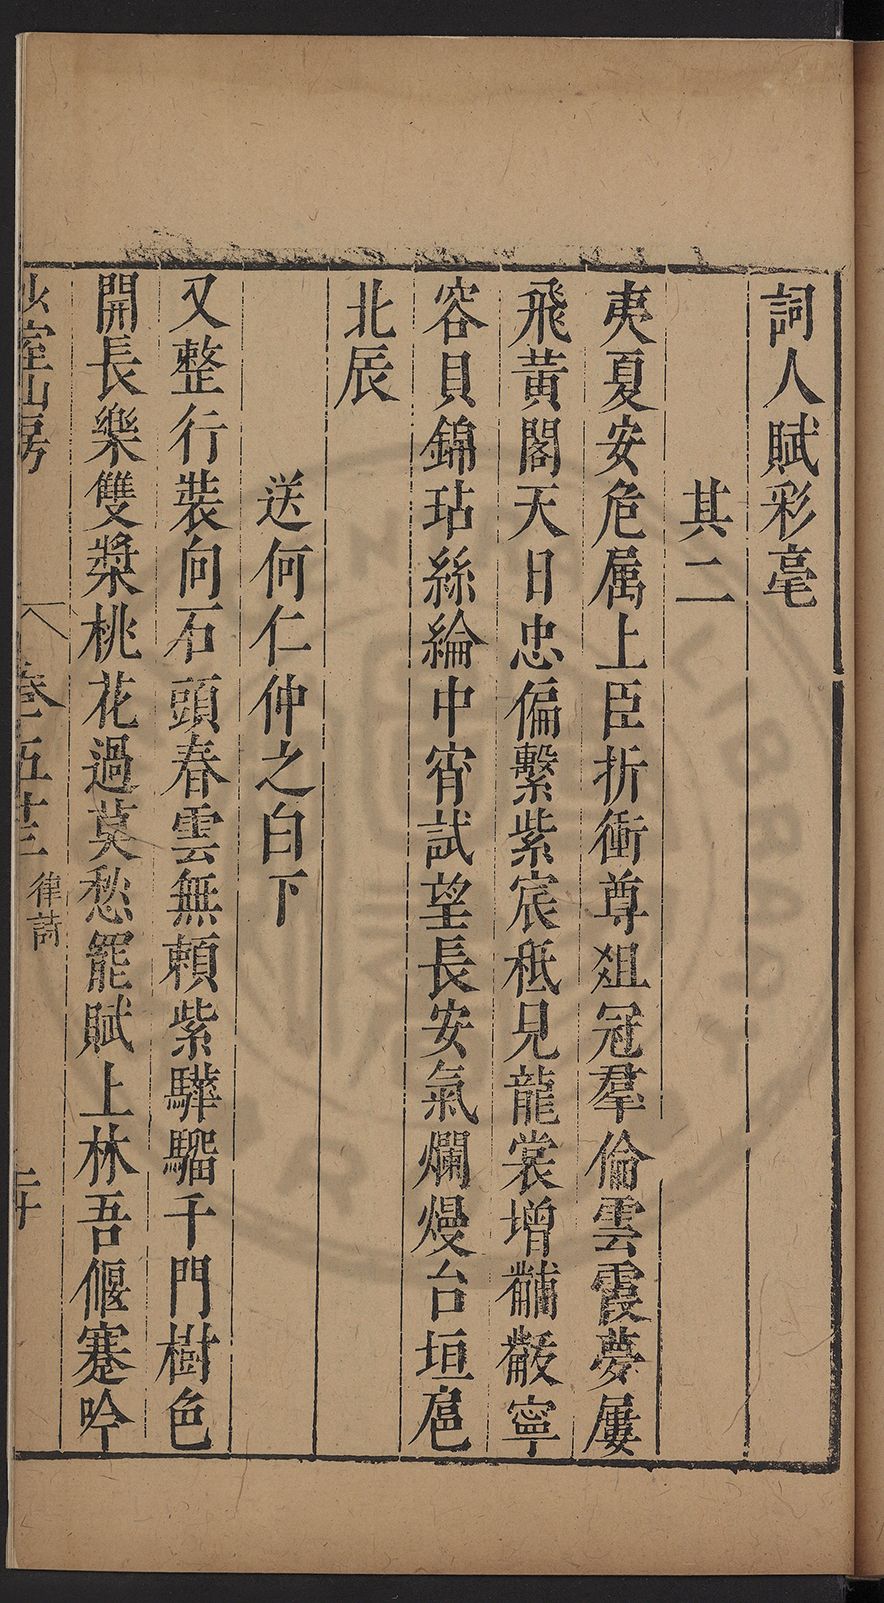 詞人賦彩毫
其二
夷夏安危属上臣折衝尊俎冠羣倫雲霞夢屢
飛黃閣天日忠偏繫紫宸秪見龍裳增黼黻寧
容貝錦玷絲綸中宵試望長安氣爛熳台垣扈
北辰
送何仁仲之白下
又整行裝向石頭春雲無賴紫驊騮千門樹色
開長樂雙槳桃花過莫愁罷賦上林吾偃蹇吟
少室山房 卷五十三 律詩 二十